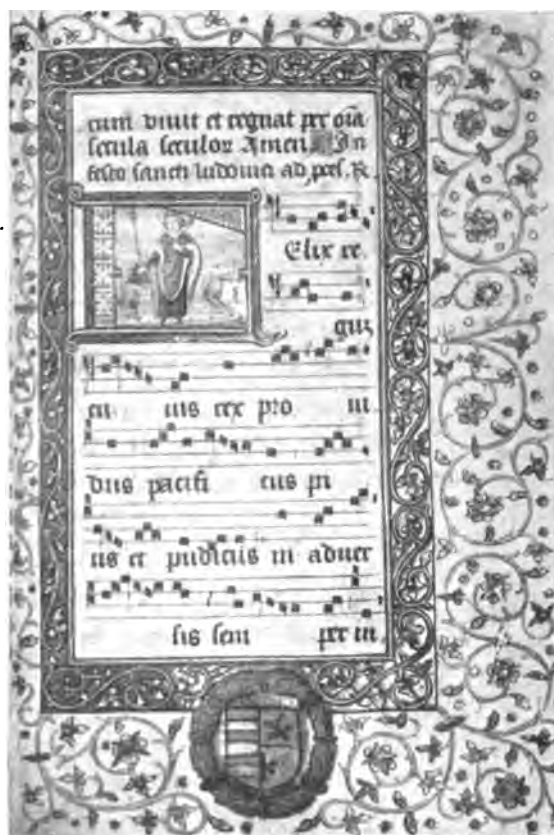 cum viuit et regnat per oīa
secula seculor Amen In
festo sancti ludouici ad pces. R.
Elix re
gnū
cu ius rex pro ui
dus pacifi cus pi
us et pudicus in aduer
sis sem per in